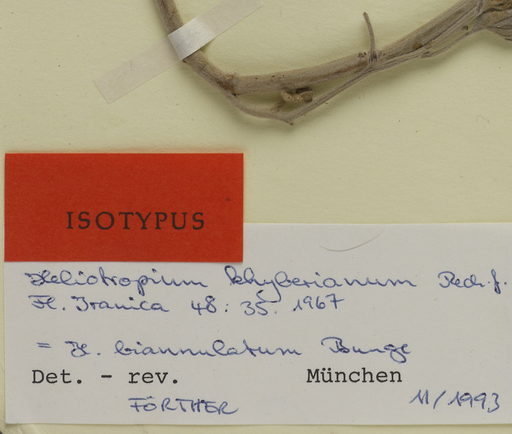 ISOTYPUS
Heliotropium khyberianum Rech. f.
Fl. Iranica 48: 35. 1967
= H. biannulatum Bunge
Det. - rev. München
FÖRTHER 11/1993